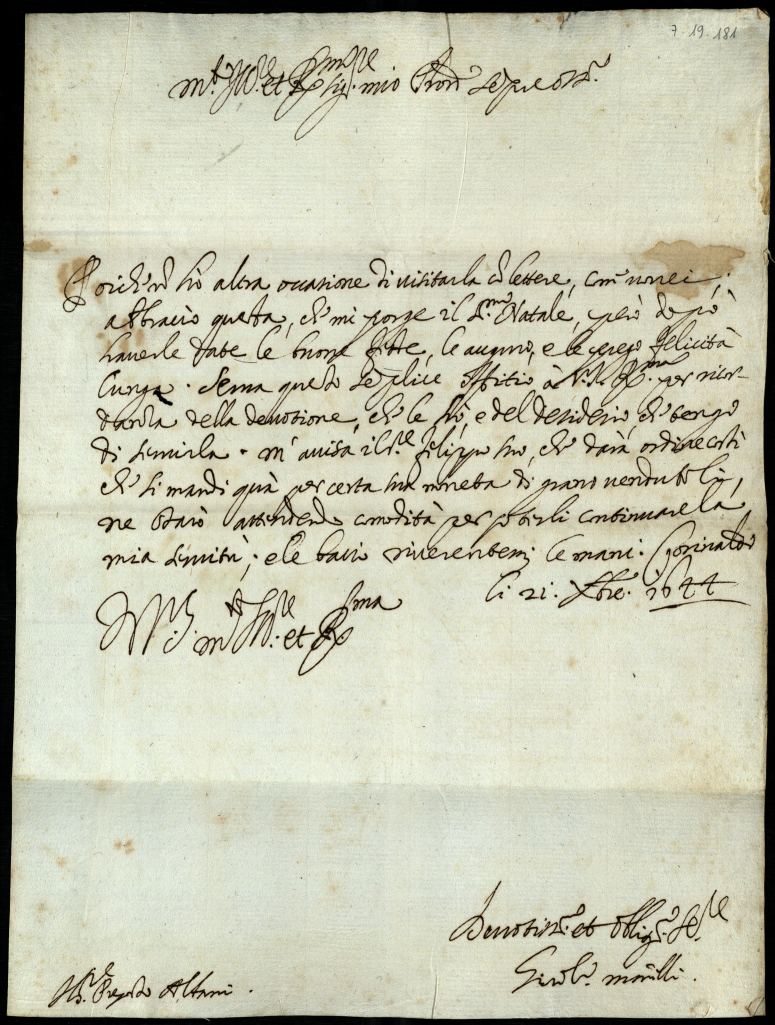 7-19-181
m.to Ill.re et R.mo sig.re mio Pron
Poiche nõ hò altra occasione di visitarla cõ lettere, com' vorrei,
abbracio questa, che mi porge il S.mo Natale, però dopò
haverle date le buone feste, le auguro, e le prego felicità
lunga. Serva questo semplice offitio à V.S. R.ma per ricor-
danza della devotione, che le hò, e del desiderio, che tengo
di servirla. m'avisa il s.re filippo suo, che darà ordine costì
che si mandi quà per certa sua moneta di grano venduto li,
ne starò attendendo comodità per poterli continuare la
mia servitù; e le bacio riverentem: le mani. Corinaldo
li 21. Xbre. 1644
D V.S. m.to Ill.re et R.ma
Devotiss.o et oblig.o Se.re
Girol.o
S.r Preposto Albani.